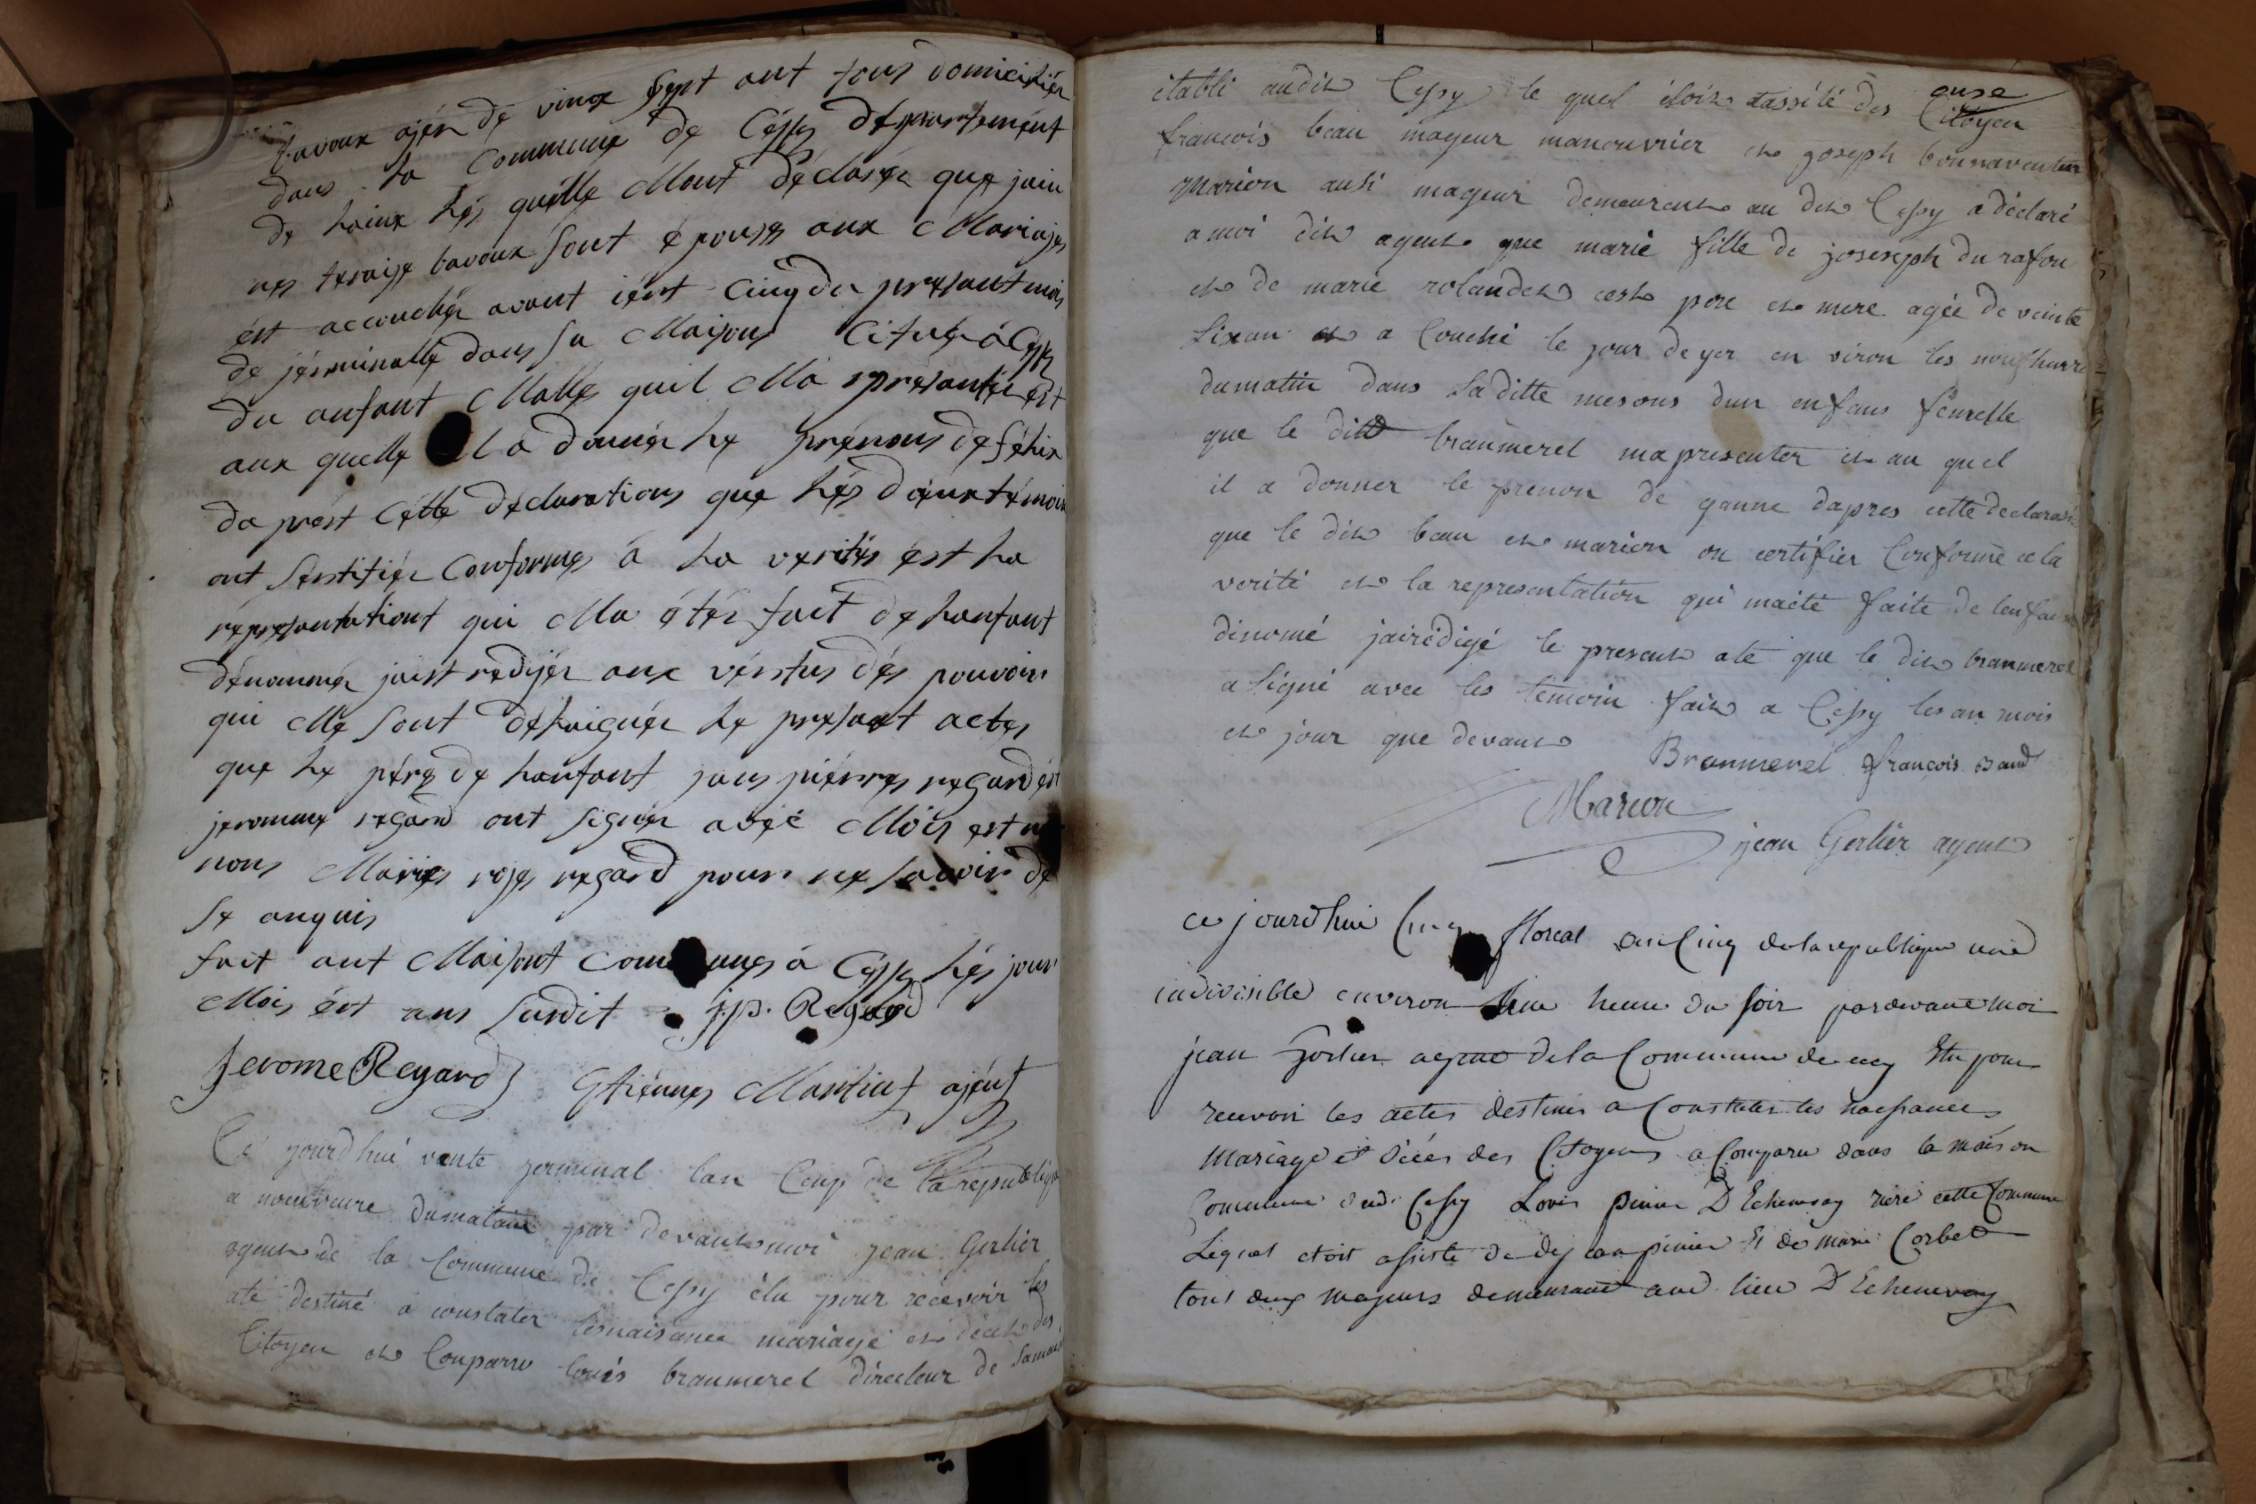 bavoux ajér de vingt sept ant tous domiciliér
dans la commune de Céssy département
de Laint lés quélle Mont déclarér que join
nes teraise bavoux sont épouse aux Mariajes
ést accouchér avant iért cinq du présant mois
de jérminalle dans sa Maison Cituée á Céssy
du anfant Malle quil Má présantér ést
aux quelle il a donnér le prénons de félix
da prést cétte déclarations que lés déux témoin
ont sértifiér conforme á la verités ést la
réprésantationt qui Ma étér fait de lanfant
dénommér jaist redijér aux vértus dés pouvoirs
qui Me sont déléguér le présant actes
que le pére de lanfant jans piérres regard ést
jeromme regard ont signér avéc Mois est
nons Maries rose regard pour ne savoir de
se anquis
fait ant Maisont communes á Céssy lés jour
Mois ést ans susdit j.p. Regard
Jerome Regard Etiénnes Martint ajént
Ce jourd'hui vente germinal lan Cinq de la republiq
a neuveure dumatain par devant moi jean Gerlier
agent de la Commune de Cessy élu pour recevoir les
ate destiné a constater lesnaisance mariage et décet des
Citoyen et Comparu louis braumerel directeur de
établi audit Cessy le quel étoit assité des
Citoyen
francois beau mageur manouvrier et joseph bonnaventur
Marion ausi mageur demeurent au dit Cessy a déclaré
a moi dit agent que marie fille de joseseph du rafou
et de marie rolandet cest pere et mere agée de veinte
sixan et a Couché le jour de yer en viron les neufheurre
dumatin dans saditte mesons dun enfans femelle
que le dit braumerel ma presenter et au quel
il a donner le prenon de ganne dapres cette declarati
que le dit beau et marion on certifier Conforme a la
verité et la representation qui maété faite de lenfan
dinomé jairédigé le present ate que le dit braumerel
a signé avec les temoin fait a Cessy les an mois
et jour que devant Braumerel françois Baud
Marion
jean Gerlier agent
ce jourd'hui Cinq floreal an Cinq de la republique une
indivisible environ une heure du soir pardevant moi
jean Gerlier agent de la Commune de cecy Elu pour
recevoir les actes destines a Constater les naissances
mariage et décès des Citoyens a Comparu dans la maison
Commune dud. Cessy Louis pinier D'Echenevay riere cette Commune
Lequel etoit assisté de pinier Et de marie Corbet
tous deux majeurs demeurant aud. lieu D'Echenevay